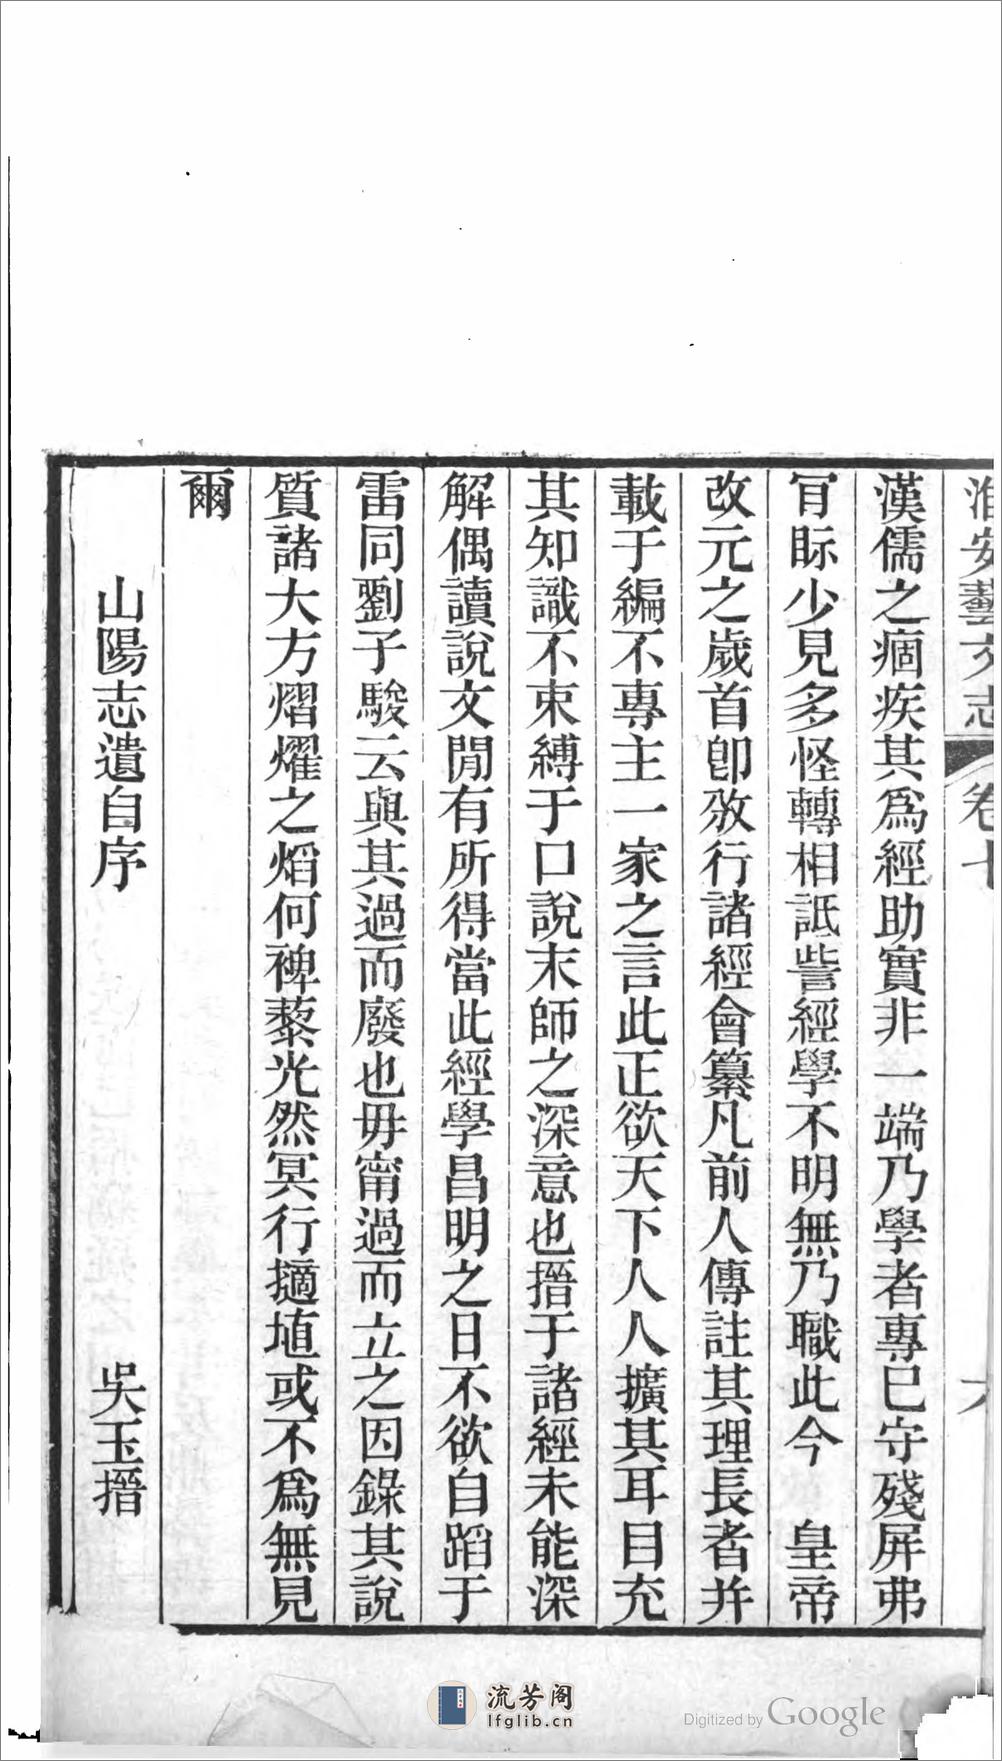 淮安藝文志 卷十 六
漢儒之痼疾其為經助實非一端乃學者專己守殘屏弗
肎眎少見多怪轉相詆訾經學不明無乃職此今　皇帝
改元之歲首卽攽行諸經會纂凡前人傳註其理長者并
載于編不專主一家之言此正欲天下人人擴其耳目充
其知識不束縛于口說末師之深意也搢于諸經未能深
解偶讀說文閒有所得當此經學昌明之日不欲自蹈于
雷同劉子駿云與其過而廢也毋甯過而立之因錄其說
質諸大方熠燿之熖何裨藜光然冥行擿埴或不為無見
爾
山陽志遺自序　吳玉搢
流芳阁
lfglib.cn
Digitized by Google